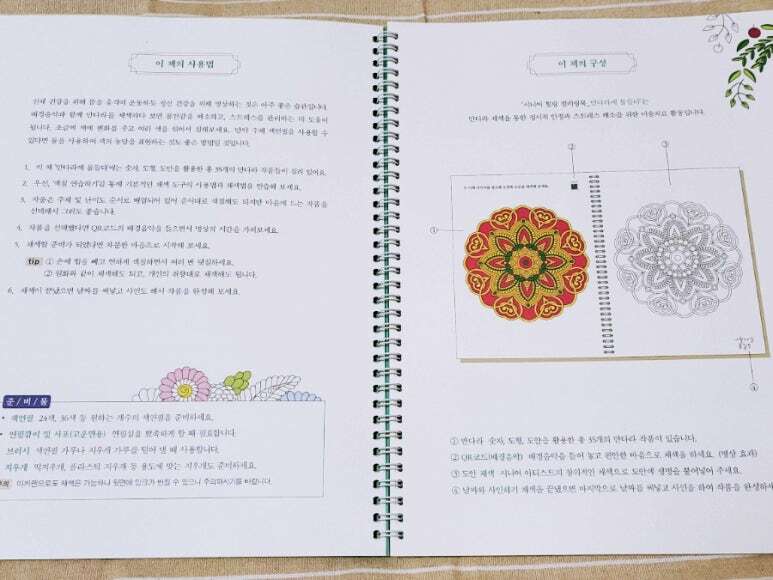 이 책의 사용법
신체 건강을 위해 몸을 움직여 운동하듯 정신 건강을 위해 명상하는 것은 아주 좋은 습관입니다.
배경음악과 함께 만다라를 채색하다 보면 불안감을 해소하고, 스트레스를 관리하는 데 도움이
됩니다. 조금씩 색에 변화를 주고 여러 색을 섞어서 칠해보세요. 만약 수채 색연필을 사용할 수
있다면 물을 사용하여 색의 농담을 표현하는 것도 좋은 방법일 것입니다.
1. 이 책 '만다라에 물들다'에는 숫자, 도형, 도안을 활용한 총 35개의 만다라 작품들이 실려 있어요.
2. 우선, '색칠 연습하기'를 통해 기본적인 채색 도구의 사용법과 채색법을 연습해 보세요.
3. 작품은 주제 및 난이도 순서로 배열되어 있어 순서대로 색칠해도 되지만 마음에 드는 작품을
선택해서 그려도 좋습니다.
4. 작품을 선택했다면 QR코드의 배경음악을 들으면서 명상의 시간을 가져보세요.
5. 채색할 준비가 되었다면 차분한 마음으로 시작해 보세요.
tip ① 손에 힘을 빼고 연하게 색칠하면서 여러 번 덧칠하세요.
② 원화와 같이 채색해도 되고, 개인의 취향대로 채색해도 됩니다.
6. 채색이 끝났으면 날짜를 써넣고 사인도 해서 작품을 완성해 보세요.
준/비/물
• 색연필 24색, 36색 등 원하는 개수의 색연필을 준비하세요.
• 연필깎이 및 사포(고운면용) 연필심을 뾰족하게 할 때 필요합니다.
브러시 색연필 가루나 지우개 가루를 털어 낼 때 사용합니다.
지우개 떡지우개, 플라스틱 지우개 등 용도에 맞는 지우개도 준비하세요.
마커펜으로도 채색은 가능하나 뒷면에 잉크가 번질 수 있으니 주의하시기를 바랍니다.
이 책의 구성
'시니어 힐링 컬러링북_만다라에 물들다'는
만다라 채색을 통한 정서적 안정과 스트레스 해소를 위한 미술치료 활동입니다.
②
③
①
④
① 만다라 숫자, 도형, 도안을 활용한 총 35개의 만다라 작품이 있습니다.
② QR코드(배경음악) 배경음악을 틀어 놓고 편안한 마음으로 채색을 하세요. (명상 효과)
③ 도안 채색 시니어 아티스트의 창의적인 채색으로 도안에 생명을 불어넣어 주세요.
④ 날짜와 사인하기 채색을 끝냈으면 마지막으로 날짜를 써넣고 사인을 하여 작품을 완성하세